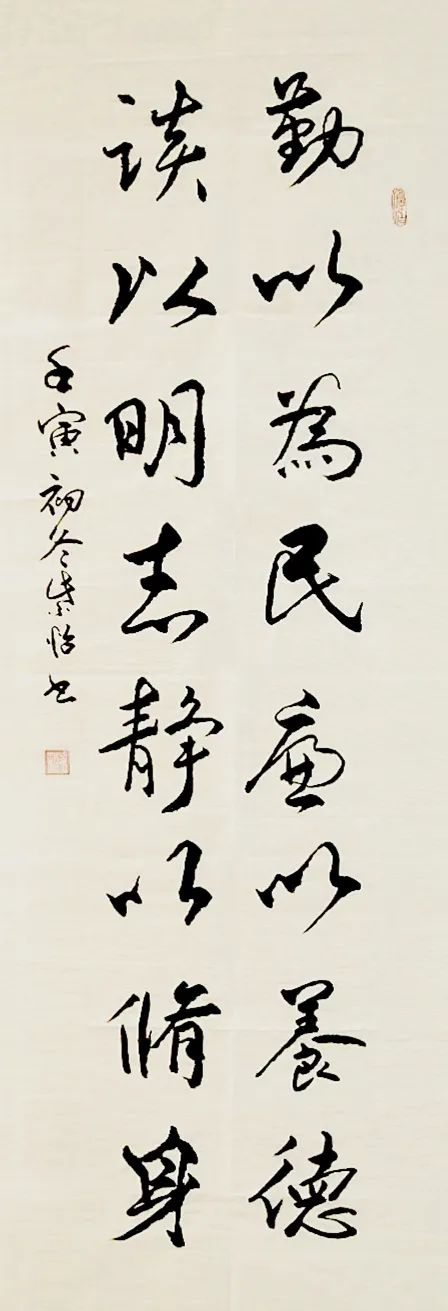 勤以為民廉以養德
談以明志静以脩身
壬寅初冬紫怡书